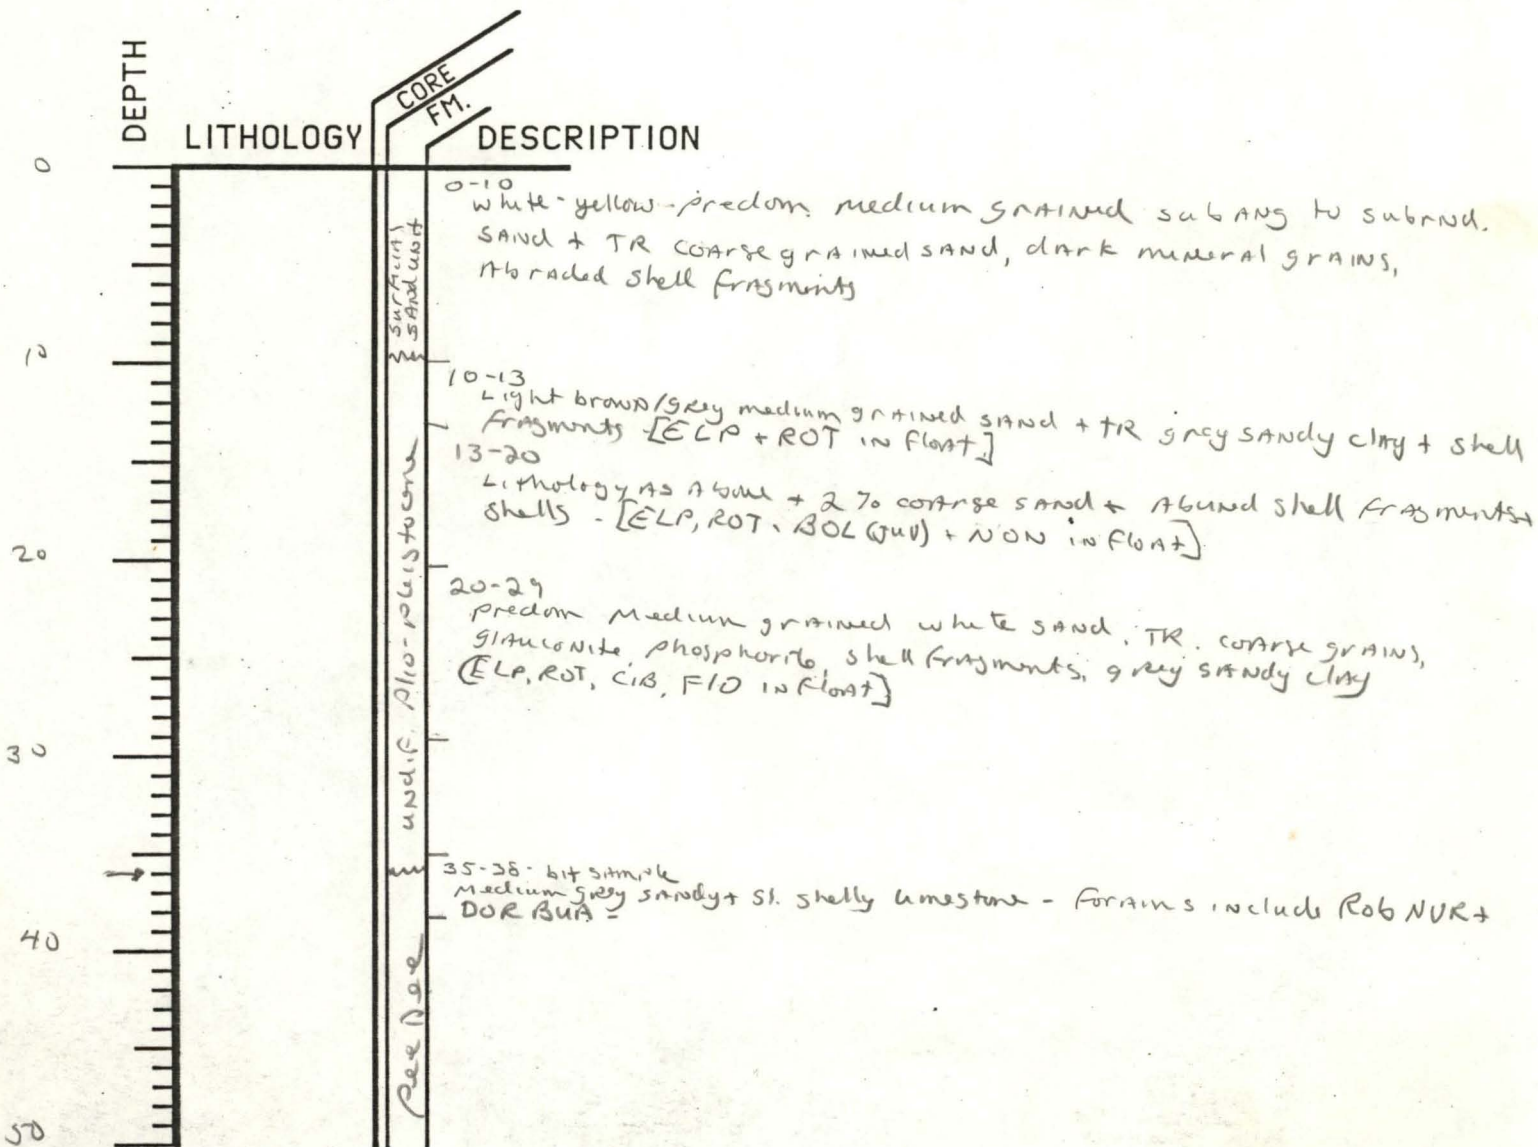 DEPTH
LITHOLOGY
CORE
FM.
DESCRIPTION
0
10
20
30
40
50
surficial
sand unit
undif. Plio-pleistocene
Pee Dee
0-10
white-yellow-predom. medium grained subang to subrnd.
sand + TR coarse grained sand, dark mineral grains,
Abraded shell fragments
10-13
Light brown/grey medium grained sand + TR grey sandy clay + shell
fragments - [ELP + ROT in float]
13-20
Lithology as above + 2% coarse sand + Abund shell fragments+
shells - [ELP, ROT, BOL (juv) + NON in float]
20-29
predom medium grained white sand, TR. coarse grains,
glauconite, phosphorite, shell fragments, grey sandy clay
(ELP, ROT, CIB, F/O in float]
35-38- bit sample
Medium grey sandy + sl. shelly limestone - forams include Rob NUR +
DOR BUA -